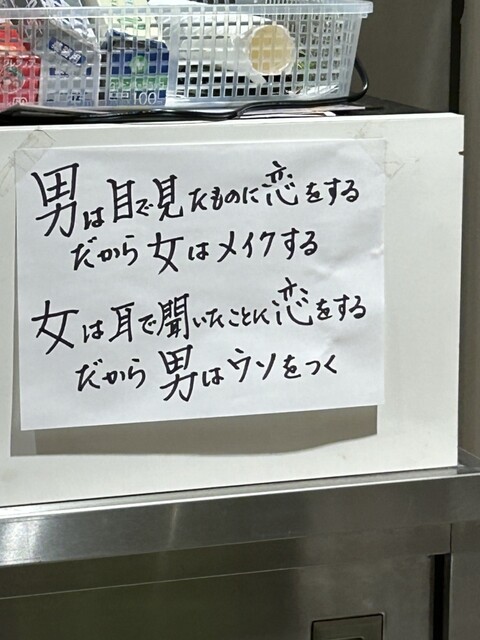 男は目で見たものに恋をする
だから女はメイクする
女は耳で聞いたことに恋をする
だから男はウソをつく
100